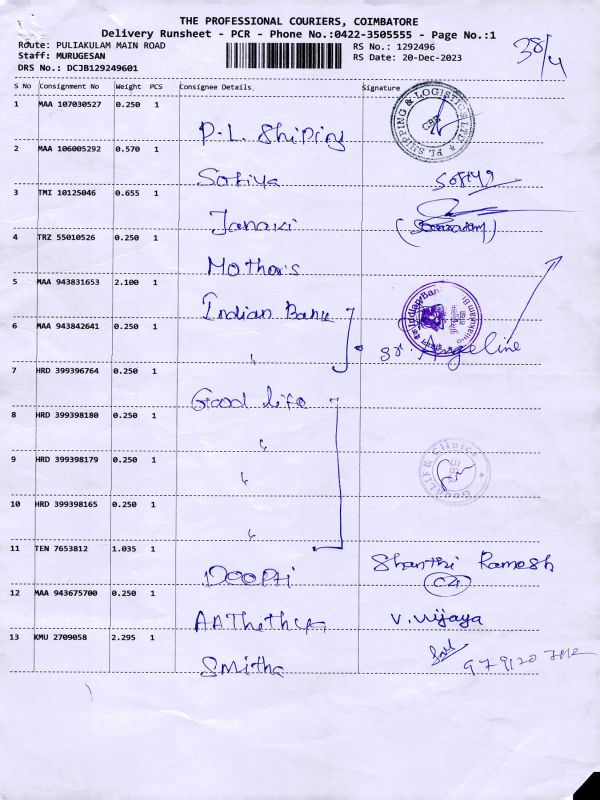 THE PROFESSIONAL COURIERS, COIMBATORE
Delivery Runsheet - PCR - Phone No.:0422-3505555 - Page No.:1
Route: PULIAKULAM MAIN ROAD
RS No.: 1292496
38/4
Staff: MURUGESAN
RS Date: 20-Dec-2023
DRS No.: DCJB129249601
S No Consignment No Weight PCS Consignee Details Signature
1 MAA 107030527 0.250 1
P.L. Shiping
PL SHIPPING & LOGISTICS LTD CBE
2 MAA 106005292 0.570 1
Sofiya
3 TMI 10125046 0.655 1
Janaki
4 TRZ 55010526 0.250 1
Mothers
5 MAA 943831653 2.100 1
Indian Bank
Indian Bank
6 MAA 943842641 0.250 1
"
Sr. Angeline
7 HRD 399396764 0.250 1
Good life
8 HRD 399398180 0.250 1
"
9 HRD 399398179 0.250 1
"
GoodLIFE Clinic CBE
10 HRD 399398165 0.250 1
"
11 TEN 7653812 1.035 1
Shanthi Ramesh
C4
12 MAA 943675700 0.250 1
V. Vijaya
13 KMU 2709058 2.295 1
Smitha